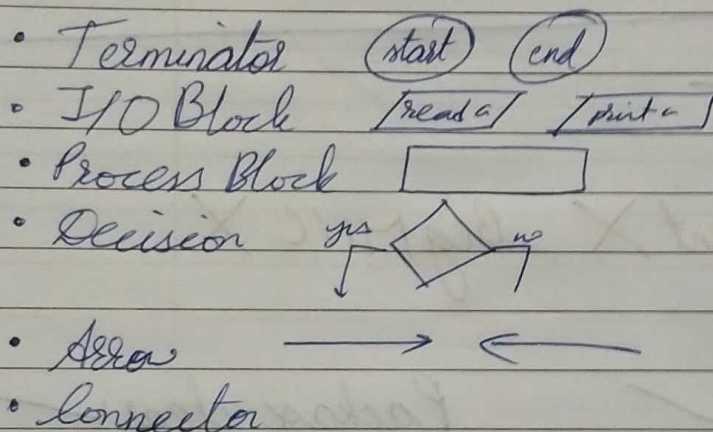 • Terminator start end
• I/O Block read a print a
• Process Block
• Decision yes no
• Arrow
• Connector